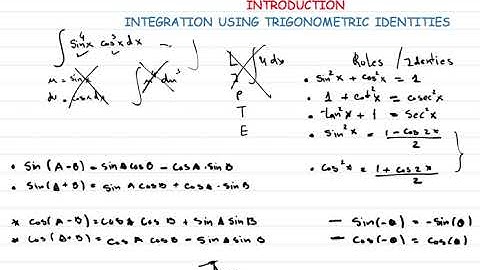 INTRODUCTION
INTEGRATION USING TRIGONOMETRIC IDENTITIES
∫ sin⁴x cos³x dx
u = sinx
du = cosx dx
L
P
T
E
∫ u dx
Rules / Identies
• sin²x + cos²x = 1
• 1 + cot²x = cosec²x
• tan²x + 1 = sec²x
• sin²x = (1 - cos2x)/2
• cos²x = (1 + cos2x)/2
• Sin (A-B) = sinA cosB - cosA . sinB
• Sin(A+B) = sinA cosB + cosA . sinB
* Cos(A-B) = cosA cosB + sinA sinB
* Cos(A+B) = cosA cosB - sinA sinB
- Sin(-θ) = -sin(θ)
- Cos(-θ) = cos(θ)